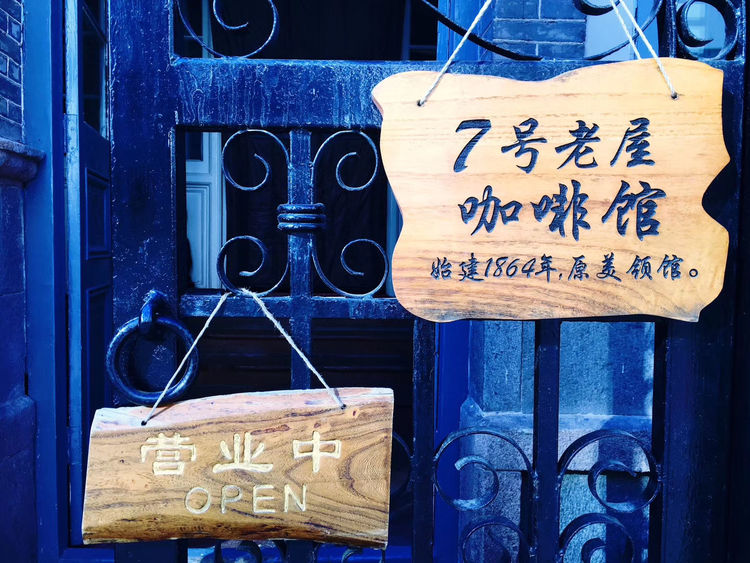 7号老屋
咖啡馆
始建1864年,原美领馆。
营业中
OPEN